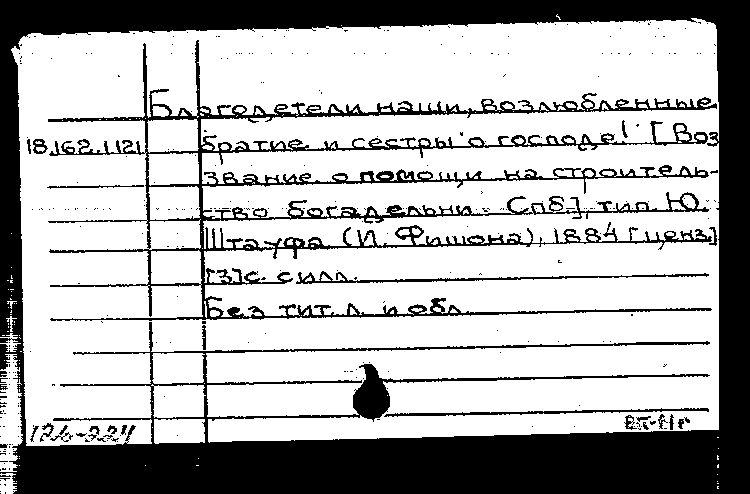 Благодетели наши, возлюбленные
18.162.1.121 братие и сестры о господе! [Воз
звание о помощи на строитель-
ство богадельни. Спб.], тип. Ю.
Штауфа (И. Фишона), 1884 [ценз.]
[3]с. с илл.
Без тит. л. и обл.
126-224